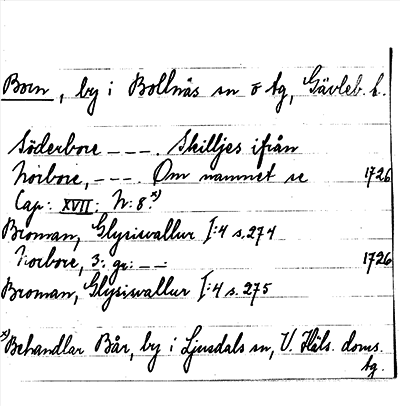 Boren, by i Bollnäs sn o tg, Gävleb. l.
Söderbore --- Skilljes ifrån
Norbore, --- Om namnet se 1726
Cap: XVII: N: 8. x)
Broman, Glysisvallur I:4 s. 274
Norbore, 3: gr: --: 1726
Broman, Glysisvallur I:4 s. 275
x) Behandlar Bår, by i Ljusdals sn, V. Häls. doms.
tg.